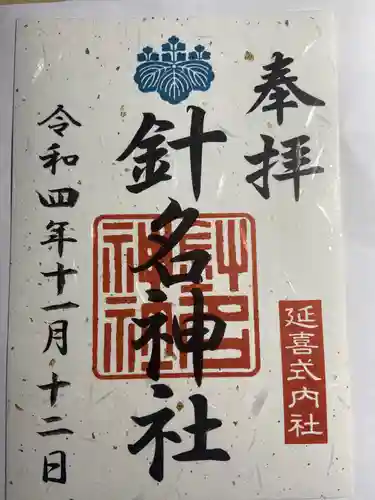 奉拝
延喜式内社
針名神社
針名神社
令和四年十一月十二日